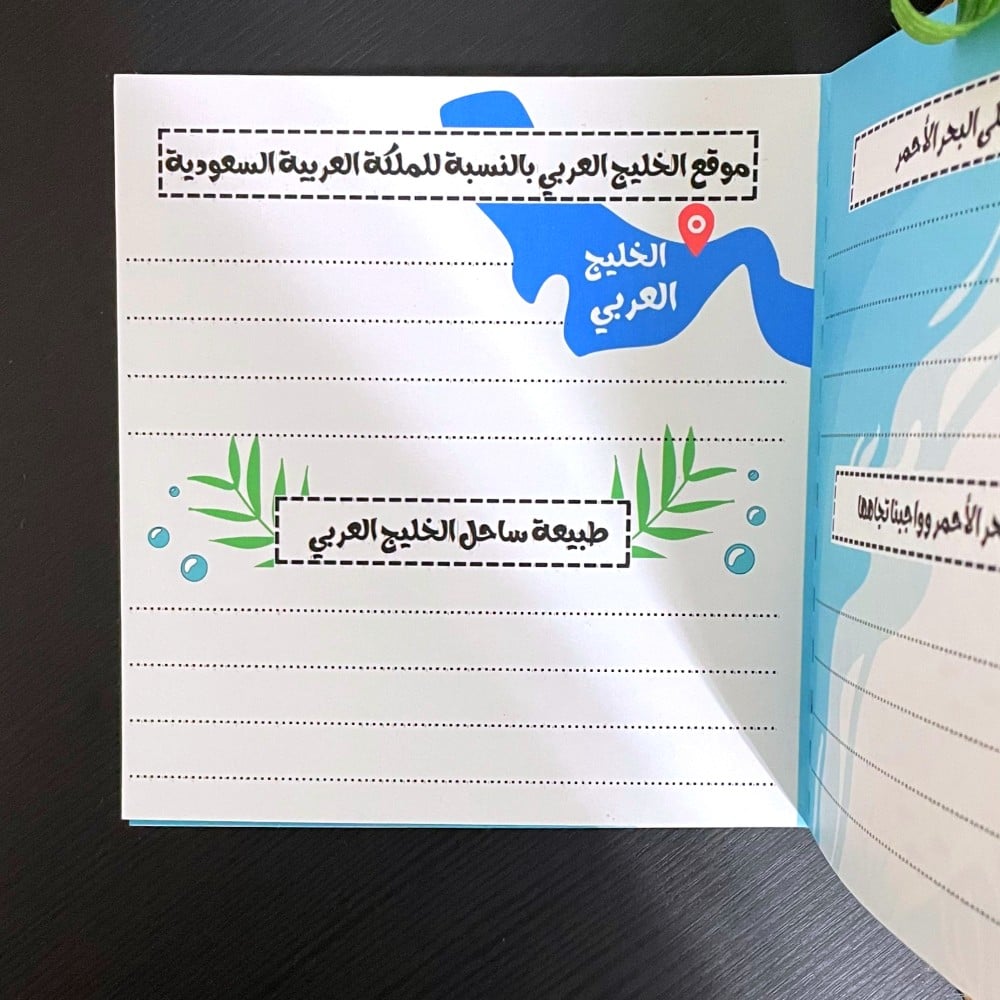 موقع الخليج العربي بالنسبة للملكة العربية السعودية
الخليج
العربي
طبيعة ساحل الخليج العربي
البحر الأحمر
الأحمر وواجبنا تجاهها